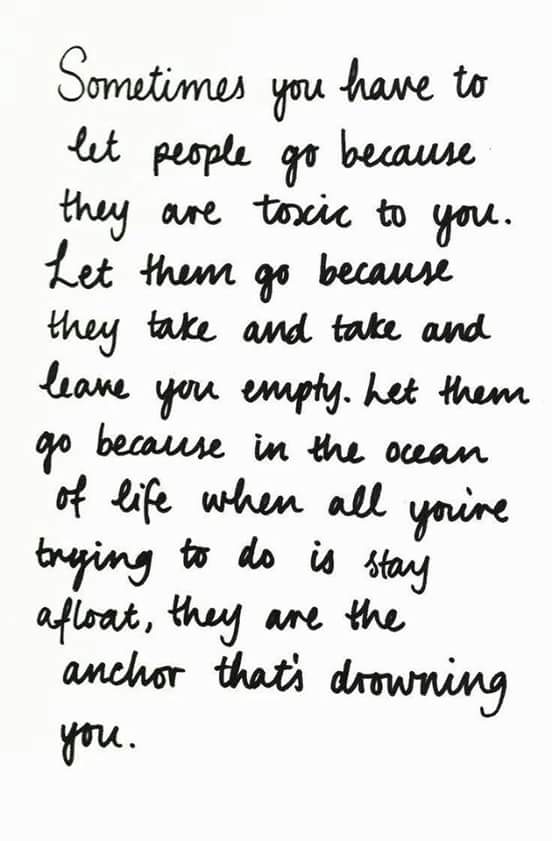 Sometimes you have to
let people go because
they are toxic to you.
Let them go because
they take and take and
leave you empty. Let them
go because in the ocean
of life when all you're
trying to do is stay
afloat, they are the
anchor that's drowning
you.